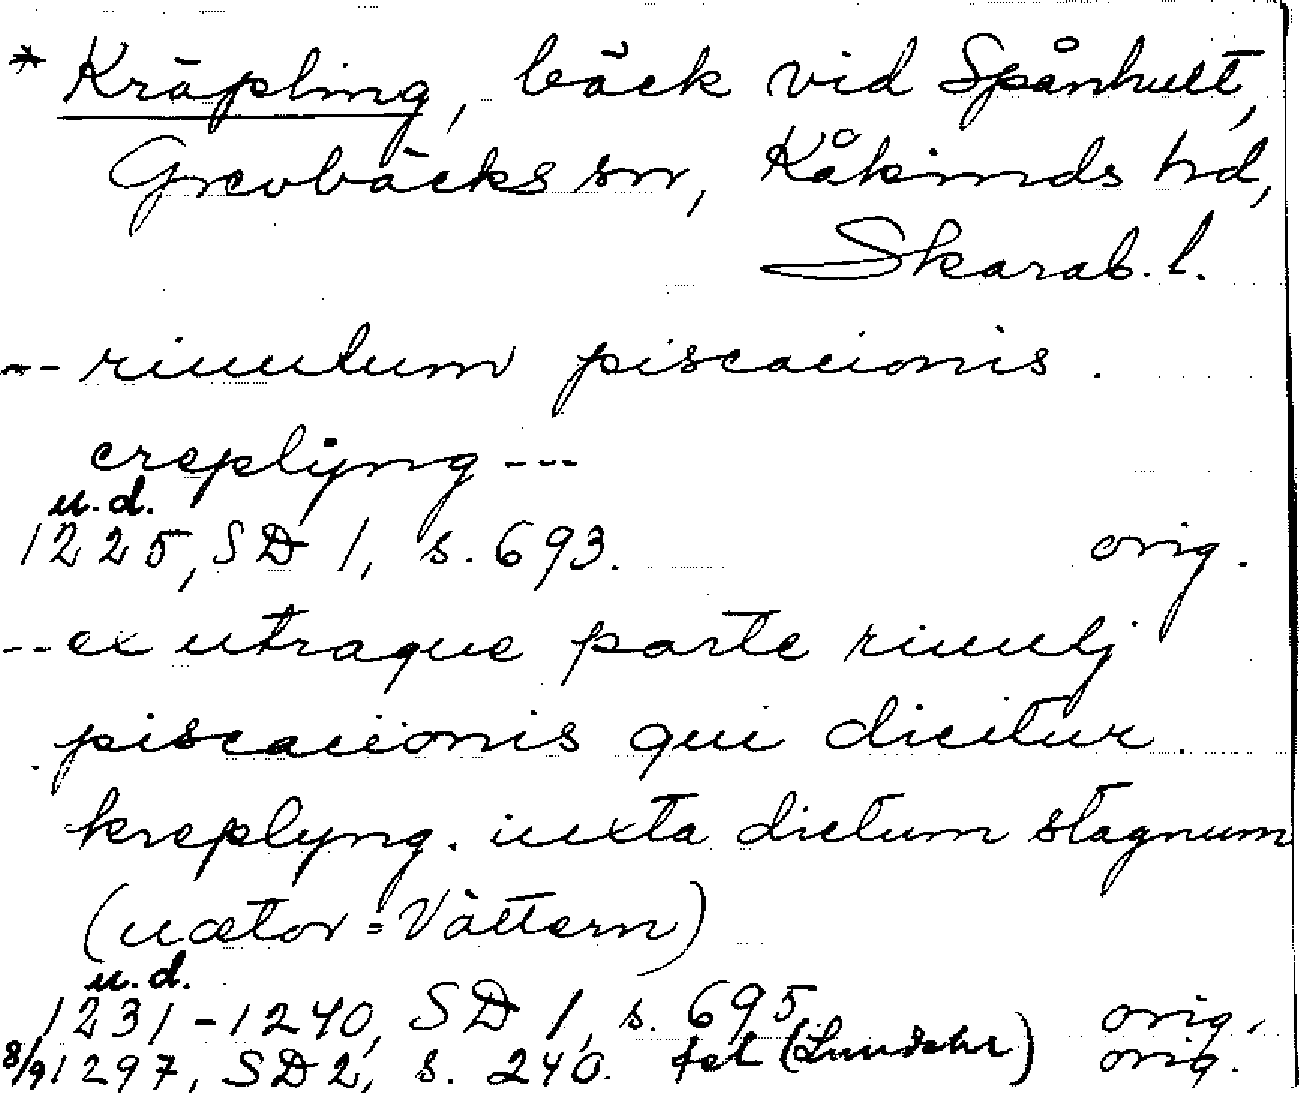 * Kräpling, bäck vid Spånhult,
Grevbäcks sn, Kåkinds hd,
Skarab. l.
-- riuulum piscacionis.
creplijng ---
u.d.
1225, SD 1, s. 693. orig.
-- ex utraque parte riuulj
piscacionis qui dicitur
kreplyng. iuxta dictum stagnum
(uætor = Vättern)
u.d.
1231-1240, SD 1, s. 695 orig.
8/9 1297, SD 2, s. 240. fel orig.